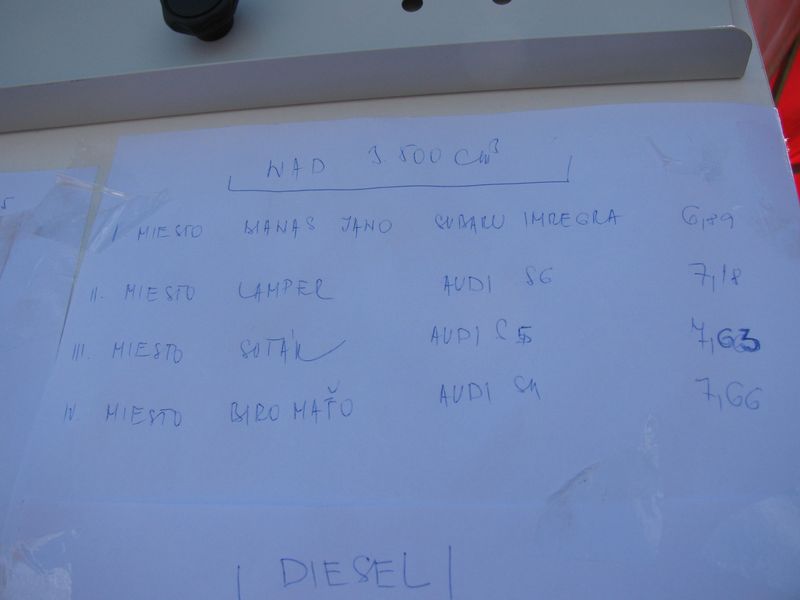 5
NAD 3.500 cm³
I MIESTO BIANAS JANO SUBARU IMREGRA 6,89
II. MIESTO LAMPER AUDI S6 7,18
III. MIESTO SUTÁK AUDI S5 7,63
IV. MIESTO BIRO MAŤO AUDI S4 7,66
DIESEL